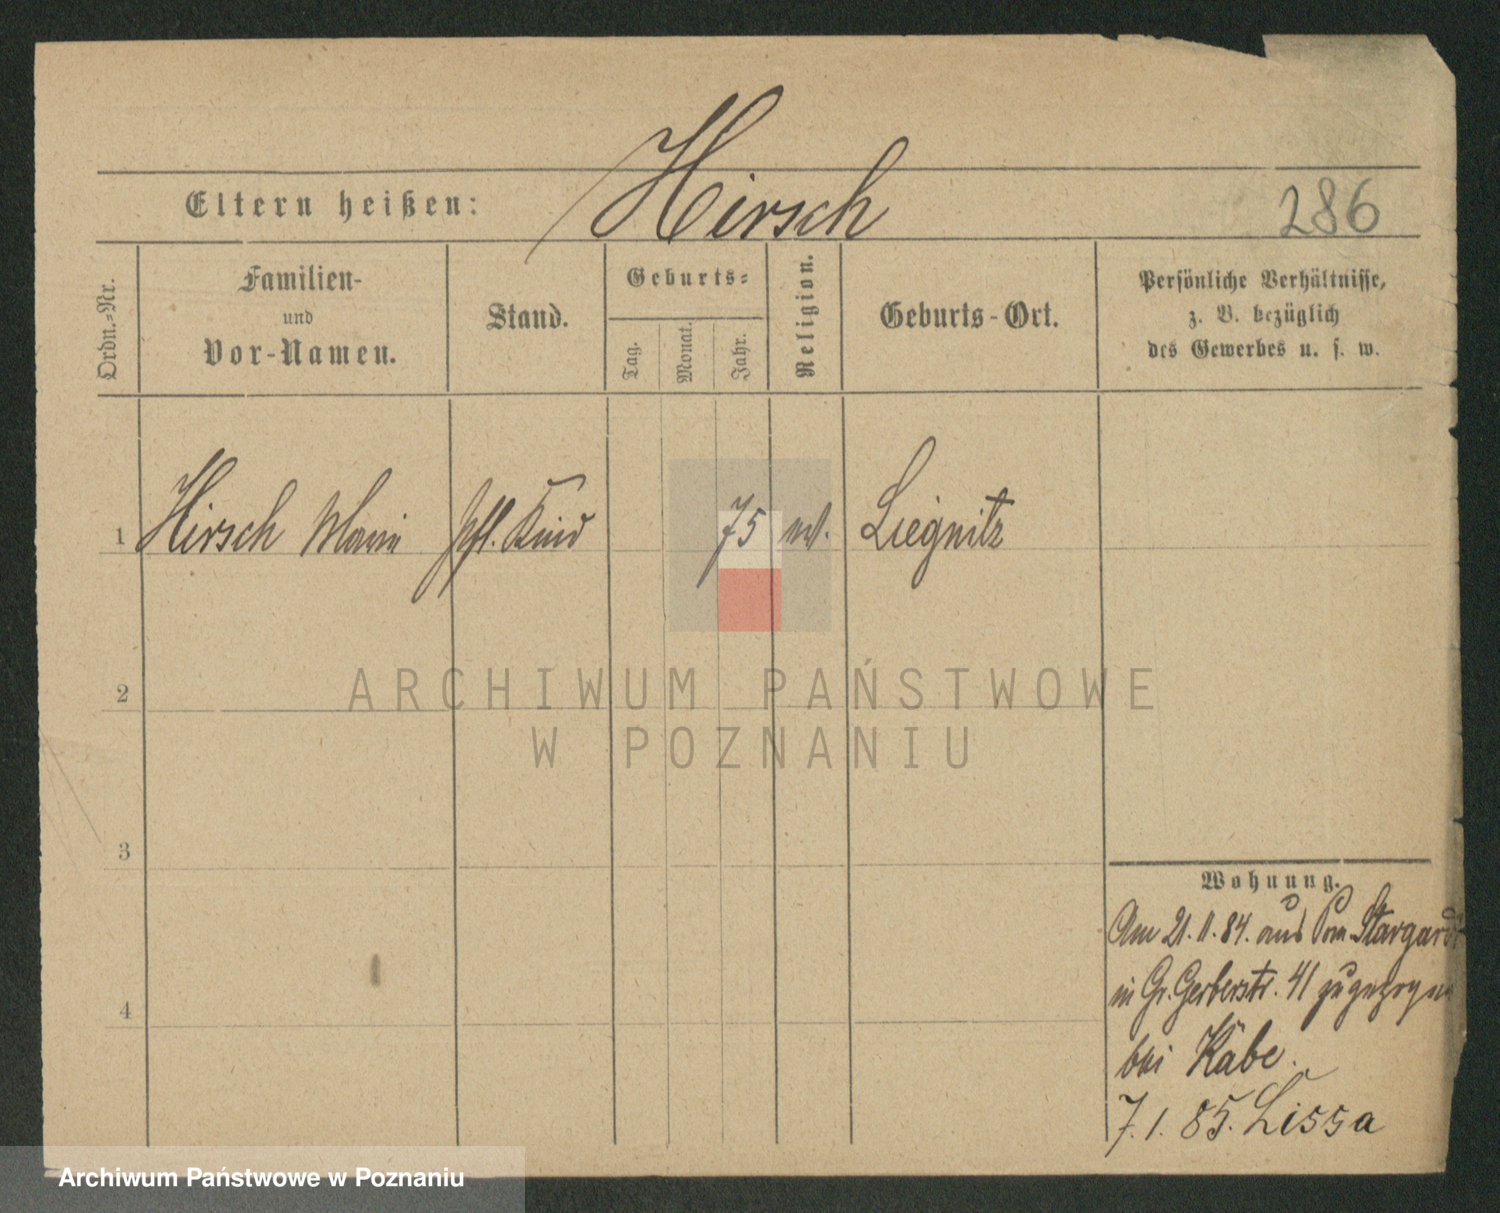 Hirsch
Eltern heißen:
286
Ordn.-Nr.
Familien-
und
Vor-Namen.
Stand.
Geburts-
Tag.
Monat.
Jahr.
Religion.
Geburts-Ort.
Persönliche Verhältnisse,
z. B. bezüglich
des Gewerbes u. s. w.
1 Hirsch Marie pfl. Kind 75 ev. Liegnitz
2
ARCHIWUM PAŃSTWOWE
W POZNANIU
3
Wohnung.
Am 21.11.84. aus Pom. Stargard
in Gr. Gerberstr. 41 zugezogen
4
bei Käbe.
7.1.85. Lissa
Archiwum Państwowe w Poznaniu